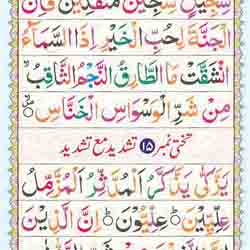 سِجِّيْلٍ سِجِّيْنٌ مُنْفَكِّيْنَ فَاِنَّ
الْجَنَّةَ لِحُبِّ الْخَيْرِ اِذَا السَّمَآءُ
انْشَقَّتْ مَا الطَّارِقُ النَّجْمُ الثَّاقِبُ
مِنْ شَرِّ الْوَسْوَاسِ الْخَنَّاسِ
تختی نمبر ۱۵ تشدید مع تشدید
يَزَّكّٰى يَذَّكَّرُ الْمُدَّثِّرُ الْمُزَّمِّلُ
عِلِّيِّيْنَ عِلِّيُّوْنَ اِنَّ الَّذِيْنَ